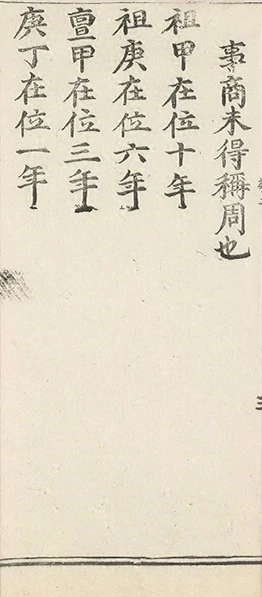 事商未得稱周也
祖甲在位十年
祖庚在位六年
亶甲在位三年
庚丁在位一年